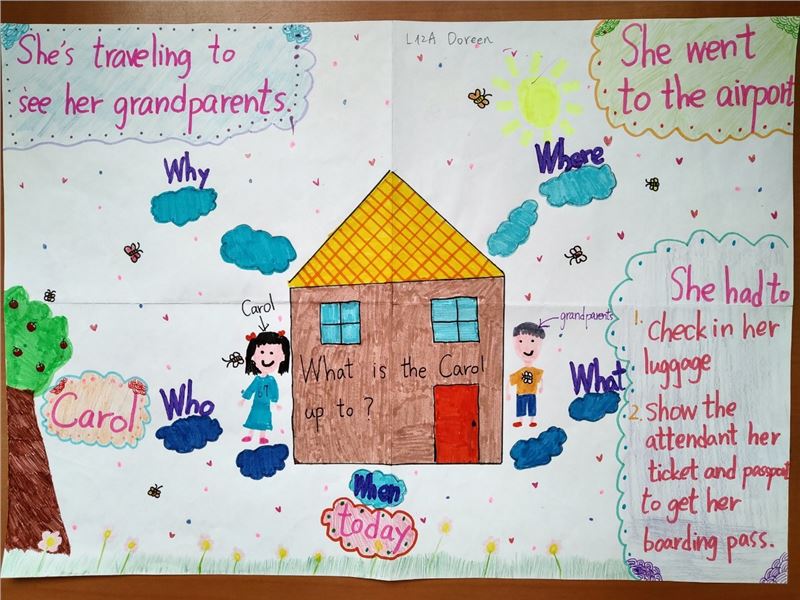 She's traveling to
see her grandparents.
L12A Doreen
She went
to the airport
Why
Where
Carol
grandparents
What is the Carol
up to ?
Carol
Who
What
She had to
1. Check in her
luggage
2. Show the
attendant her
ticket and passport
to get her
boarding pass.
When
today